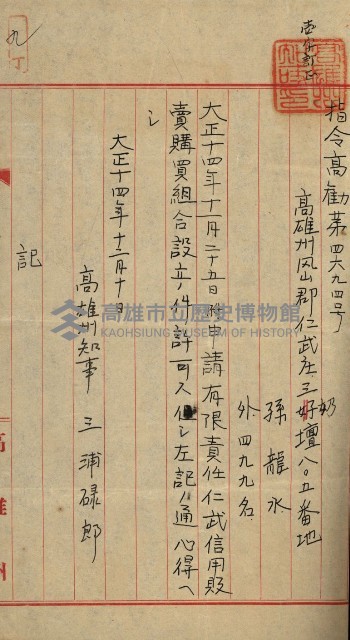 指令高勸第四六九四号
高雄州鳳山郡仁武庄三奶壇八〇五番地
孫龍水
外四九九名
大正十四年十一月二十五日附申請有限責任仁武信用販
賣購買組合設立ノ件許可ス但シ左記ノ通心得ヘ
シ
大正十四年十二月十日
高雄州知事 三浦碌郎
記
九
丁
高雄州
高雄市立歷史博物館
KAOHSIUNG MUSEUM OF HISTORY